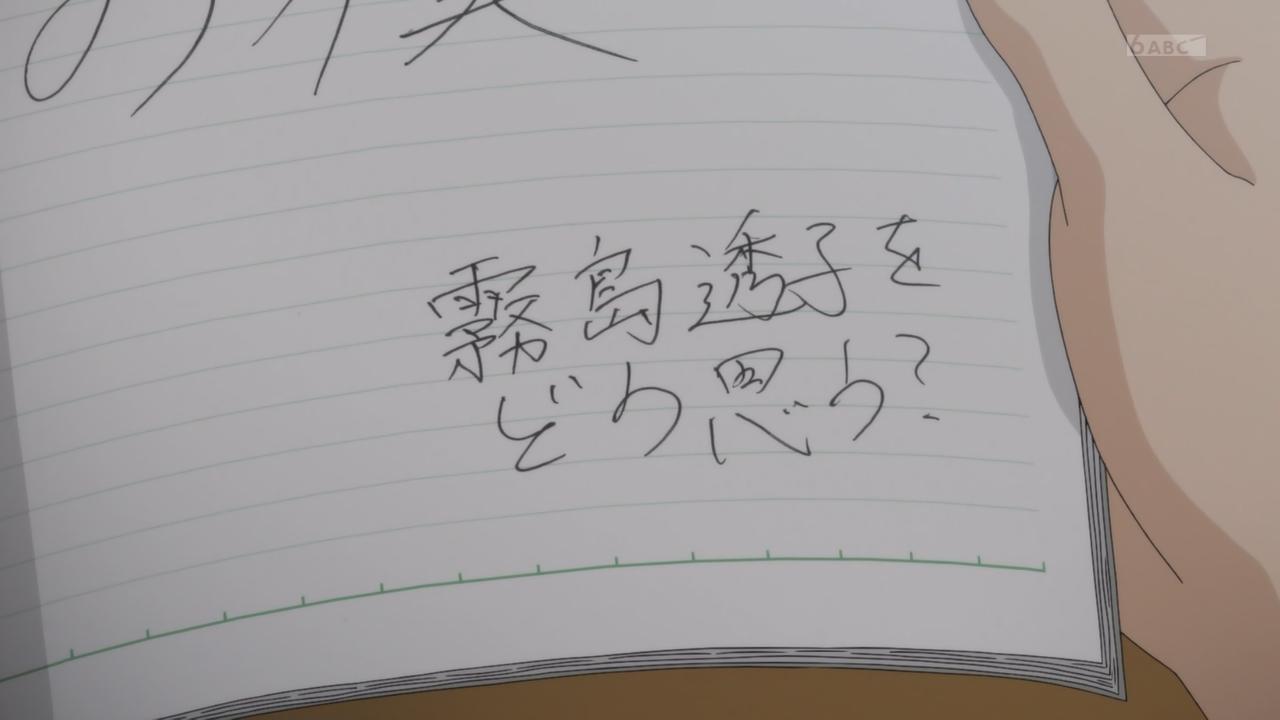 6ABC
霧島透子を
どう思う？